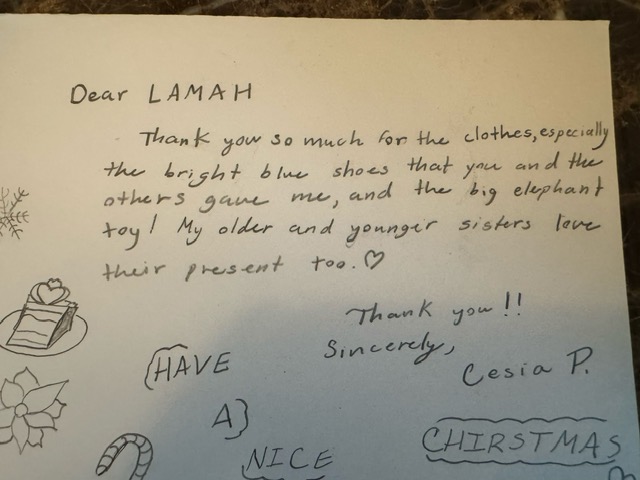 Dear LAMAH
Thank you so much for the clothes, especially
the bright blue shoes that you and the
others gave me, and the big elephant
toy! My older and younger sisters love
their present too. ♡
Thank you!!
Sincerely,
Cesia P.
(HAVE
A)
NICE
CHIRSTMAS